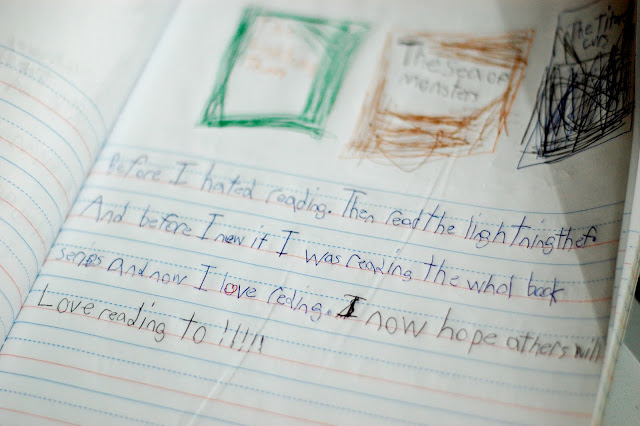 The Sea of
monsters
The Titan
curs
Before I hated reading. Then read the lightning thef
And before I new it I was reading the whol book
series And now I love reding. I now hope others will
Love reading to !!!!!